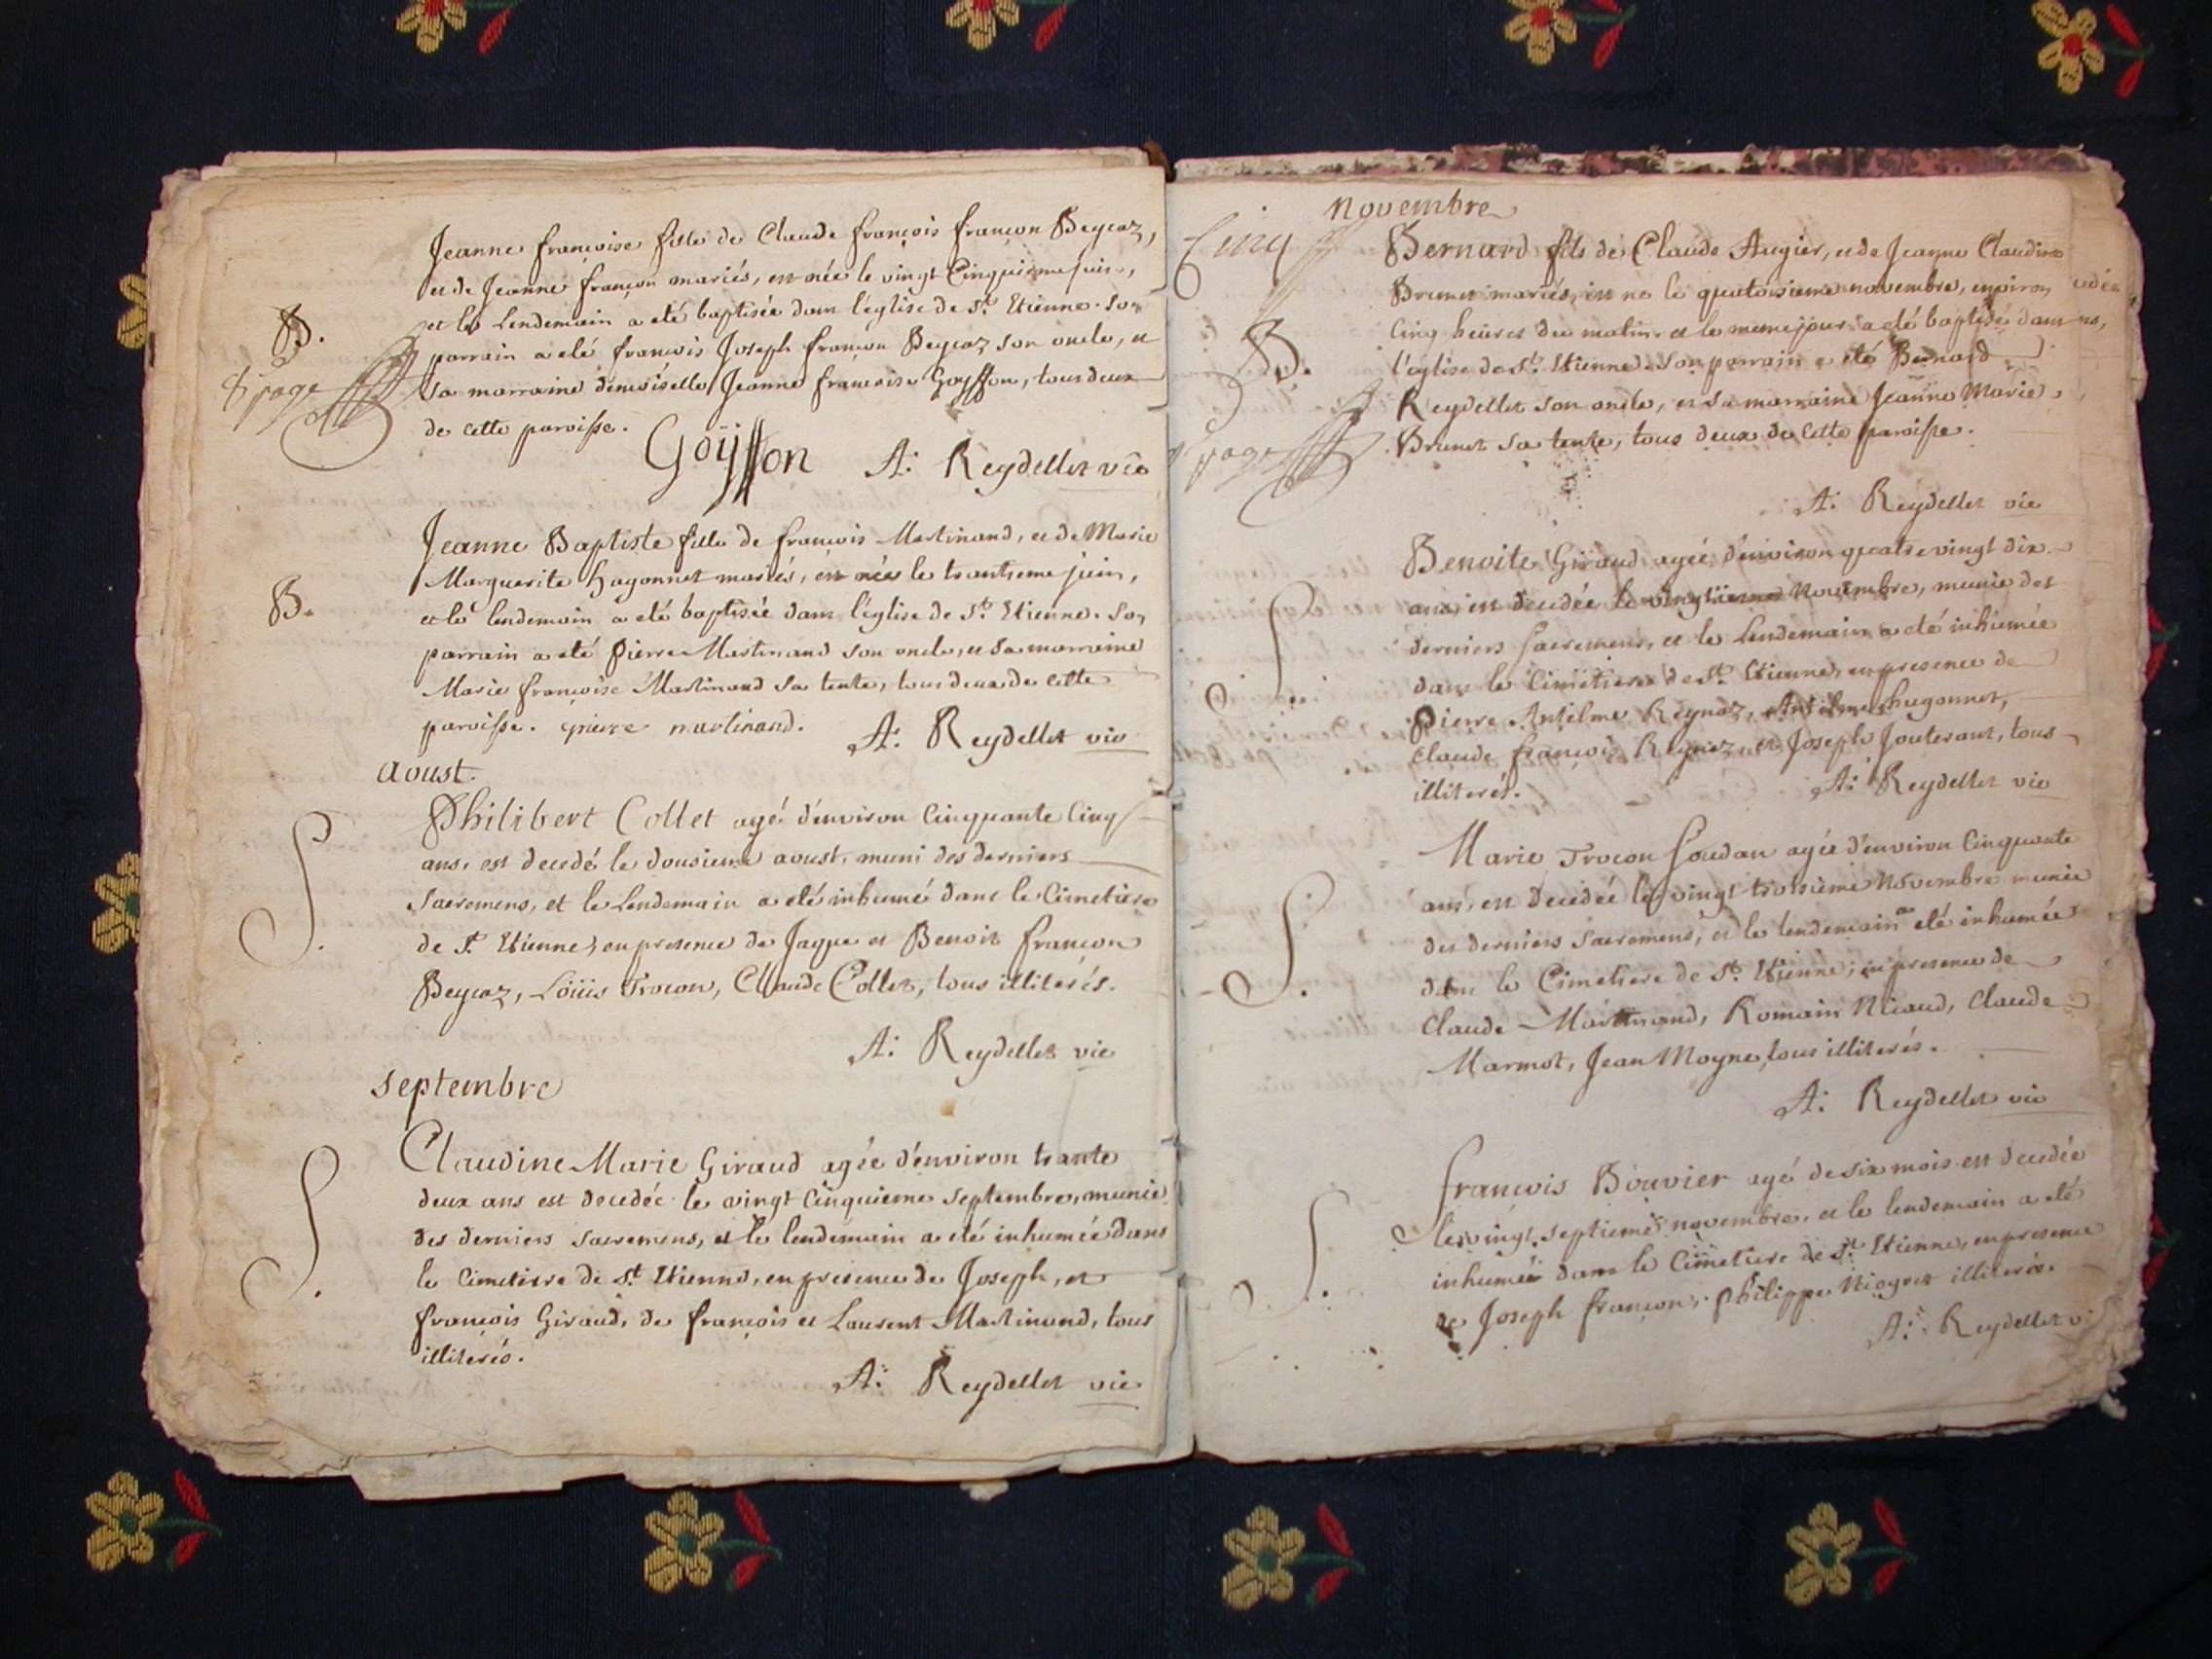 Jeanne françoise fille de Claude françois françon Beycoz,
et de Jeanne françon mariés, est née le vingt Cinquieme juin,
et le Lendemain a eté baptisée dans l'église de St. Etienne. Son
B.
parrain a eté françois Joseph françon Beycoz son oncle, et
page
sa marraine demoiselle Jeanne françoise Goÿffon, tous deux
de cette paroisse.
Goÿffon A: Reydellet vic
Jeanne Baptiste fille de françois Martinand, et de Marie
Marguerite hugonnet mariés, est née le trantieme juin,
B.
et le lendemain a eté baptisée dans l'église de St. Etienne. Son
parrain a eté pierre Martinand son oncle, et sa marraine
Marie françoise Martinand sa tente, tous deux de cette
paroisse. pierre martinand. A: Reydellet vic
Aoust.
Philibert Collet agé d'environ Cinquante Cinq
S.
ans, est decedé le dousieme aoust, muni des derniers
Sacremens, et le Lendemain a eté inhumé dans le Cimetiere
de St. Etienne, en presence de Jaque et Benoit françon
Beycoz, Loüis Trocon, Claude Collet, tous illiterés.
A: Reydellet vic
Septembre
Claudine Marie Giraud agée d'environ trante
S.
deux ans est decedée le vingt Cinquieme Septembre, munie
des derniers Sacremens, et le lendemain a eté inhumée dans
le Cimetiere de St. Etienne, en presence de Joseph, et
françois Giraud, de françois et Laurent Martinand, tous
illiterés.
A: Reydellet vic
Novembre
Cinq
Bernard fils de Claude Augier, et de Jeanne Claudine
Brunet mariés, est né le quatorsieme novembre, environ
cinq heures du matin et le meme jour a eté baptisé dans
B.
l'église de St. Etienne. Son parrain a eté Bernard
Reydellet son oncle, et sa marraine Jeanne Marie
page
Brunet sa tente, tous deux de cette paroisse.
A: Reydellet vic
Benoite Giraud agée d'environ quatre vingt dix
ans, est decedée le vingtieme Novembre, munie des
S.
derniers Sacremens, et le Lendemain a eté inhumée
dans le Cimetiere de St. Etienne, en presence de
pierre Antelme Reynoz, Antelme hugonnet,
Claude françois et Joseph tous
illiterés.
A: Reydellet vic
Marie Trocon Soudan agée d'environ Cinquante
ans, est decedée le vingt troisieme Novembre munie
S.
des derniers Sacremens, et le lendemain a eté inhumée
dans le Cimetiere de St. Etienne, en presence de
Claude Martinand, Romain Niaud, Claude
Marmot, Jean Moyne, tous illiterés.
A: Reydellet vic
françois Bouvier agé de six mois est decedée
S.
le vingt septieme novembre, et le lendemain a eté
inhumée dans le Cimetiere de St. Etienne, en presence
de Joseph françon, philippe illiterés.
A: Reydellet